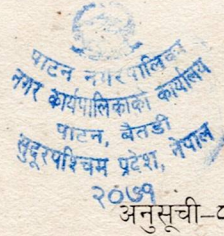 पाटन नगरपालिका
नगर कार्यपालिकाको कार्यालय
पाटन, बैतडी
सुदूरपश्चिम प्रदेश, नेपाल
२०७१
अनुसूची-